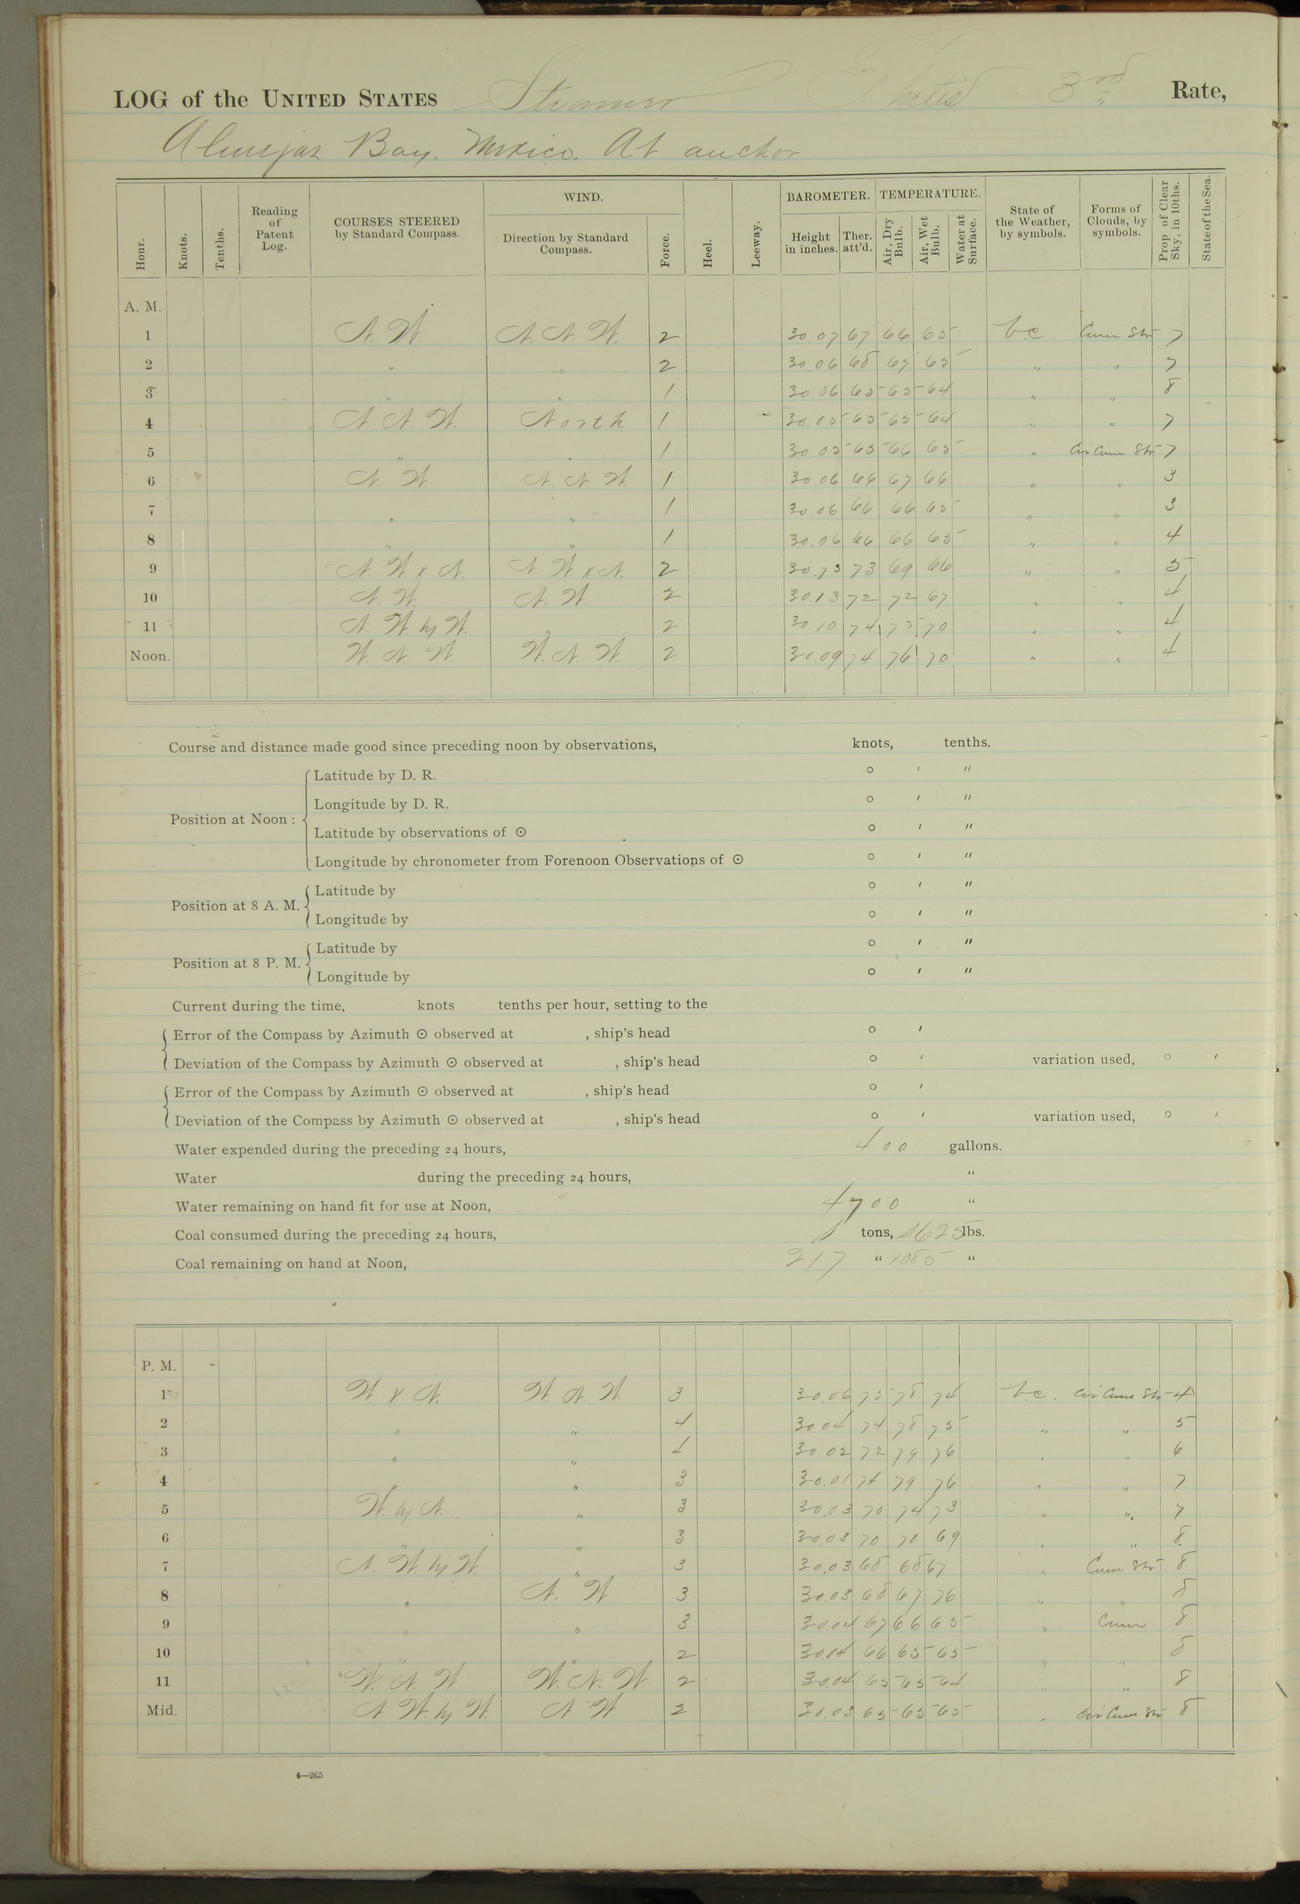 LOG of the UNITED STATES Steamer Thetis 3rd Rate,
Almejas Bay. Mexico. At anchor
Hour. Knots. Tenths. Reading of Patent Log. COURSES STEERED by Standard Compass. WIND. Direction by Standard Compass. Force. Heel. Leeway. BAROMETER. Height in inches. Ther. att'd. TEMPERATURE. Air, Dry Bulb. Air, Wet Bulb. Water at Surface. State of the Weather, by symbols. Forms of Clouds, by symbols. Prop. of Clear Sky, in 10ths. State of the Sea.
A. M.
1 N. W N. N. W. 2 30 07 67 66 65 b.c. Cum Str 7
2 " " 2 30 06 68 67 65 " " 7
3 " " 1 30 06 65 65 64 " " 8
4 N. N. W. North 1 30.05 65 65 64 " " 7
5 " " 1 30.05 65 66 65 " Cir Cum Str 7
6 N. W N. N. W 1 30.06 66 67 66 " " 3
7 " " 1 30.06 66 66 65 " " 3
8 " " 1 30.06 66 66 65 " " 4
9 N. W x N. N. W x N. 2 30.13 73 69 66 " " 5
10 N. W. N. W 2 30.13 72 72 67 " " 4
11 N. W. by W. " 2 30.10 74 73 70 " " 4
Noon. W. N. W. W. N. W. 2 30.09 74 76 70 " " 4
Course and distance made good since preceding noon by observations, knots, tenths.
Position at Noon :
Latitude by D. R. ° ′ ″
Longitude by D. R. ° ′ ″
Latitude by observations of ⊙ ° ′ ″
Longitude by chronometer from Forenoon Observations of ⊙ ° ′ ″
Position at 8 A. M. Latitude by ° ′ ″
Longitude by ° ′ ″
Position at 8 P. M. Latitude by ° ′ ″
Longitude by ° ′ ″
Current during the time, knots tenths per hour, setting to the
Error of the Compass by Azimuth ⊙ observed at , ship's head ° ′
Deviation of the Compass by Azimuth ⊙ observed at , ship's head ° ′ variation used, ° ′
Error of the Compass by Azimuth ⊙ observed at , ship's head ° ′
Deviation of the Compass by Azimuth ⊙ observed at , ship's head ° ′ variation used, ° ′
Water expended during the preceding 24 hours, 400 gallons.
Water during the preceding 24 hours, "
Water remaining on hand fit for use at Noon, 4700 "
Coal consumed during the preceding 24 hours, 1 tons, 1625 lbs.
Coal remaining on hand at Noon, 217 " 1085 "
P. M.
1 W x N. W. N. W 3 30.06 75 78 74 b.c. Cir Cum Str 4
2 " " 4 30.04 74 78 75 " " 5
3 " " 4 30.02 72 79 76 " " 6
4 " " 3 30.01 74 79 76 " " 7
5 W. by N. " 3 30.03 70 74 73 " " 7
6 " " 3 30.03 70 70 69 " " 8
7 N. W by W. " 3 30.03 68 68 67 " Cum Str 8
8 " N. W. 3 30.03 68 67 76 " " 8
9 " " 3 30.04 67 66 65 " Cum 8
10 " " 2 30.04 66 65 65 " " 8
11 W. N. W W. N. W. 2 30.04 65 65 64 " " 8
Mid. N. W. by W. N. W 2 30.03 65 65 65 " Cir Cum Str 8
4—265